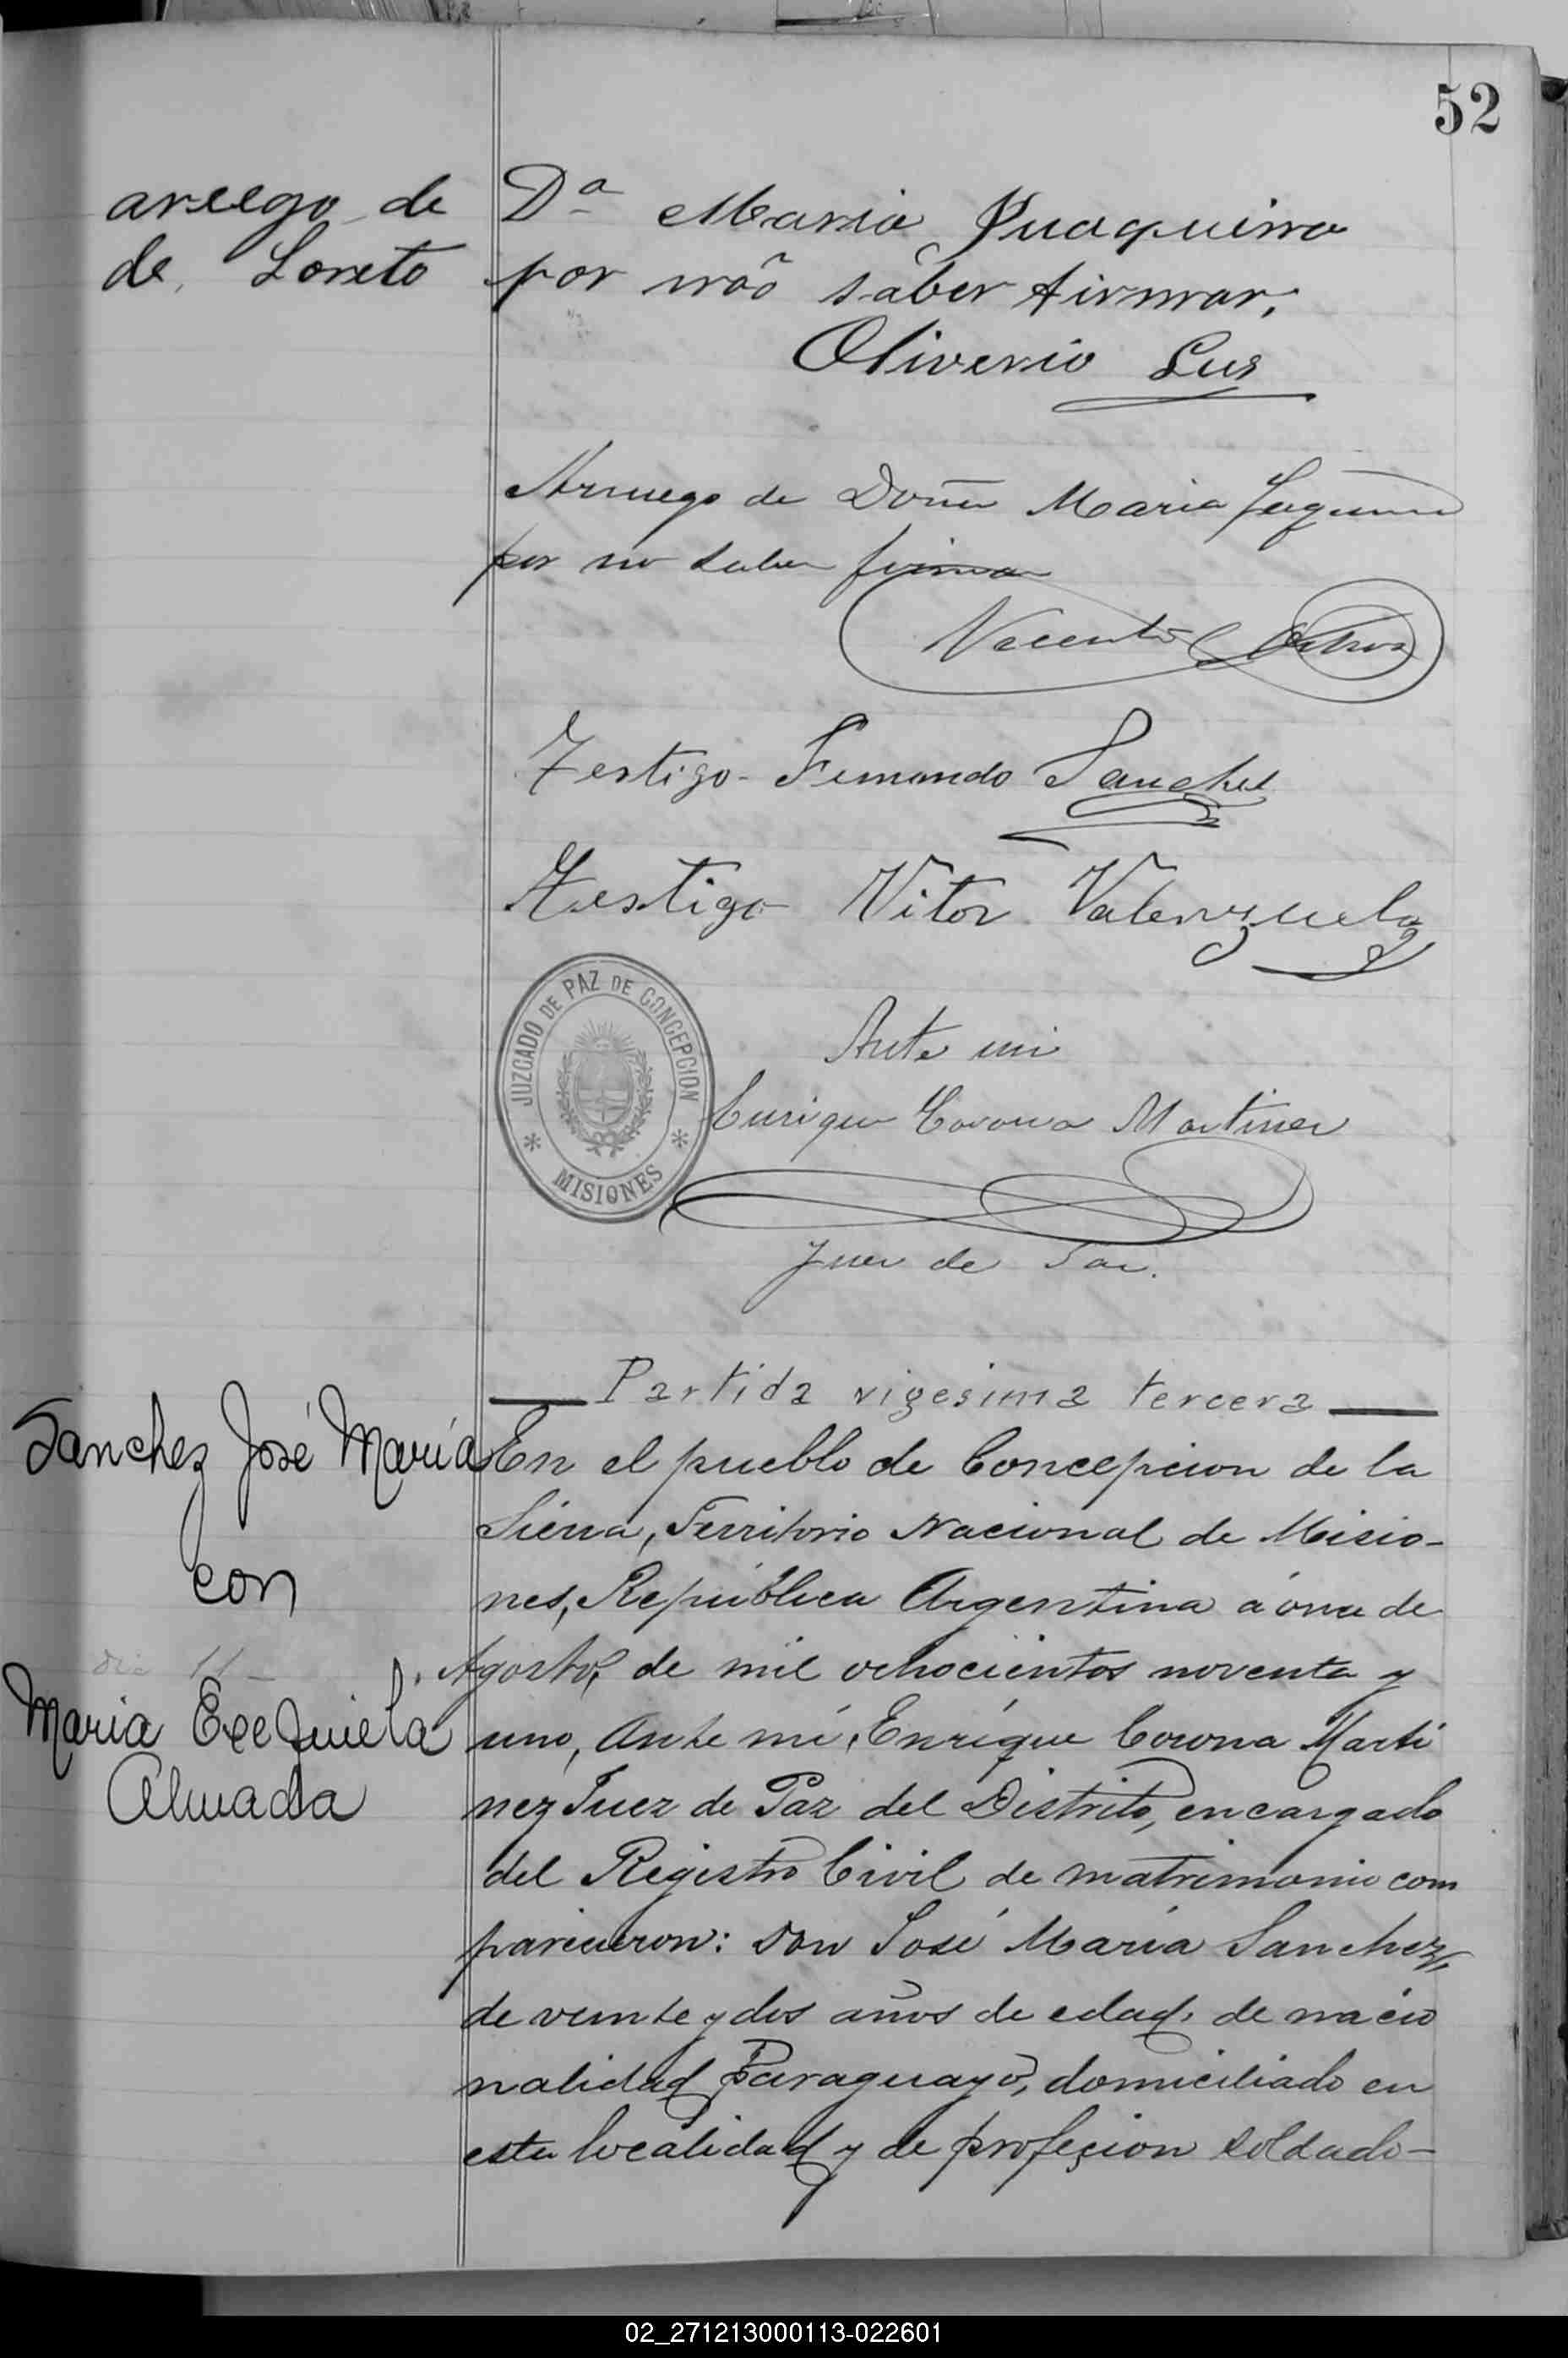 52
areego de Dª Maria Juaquina
de Loreto por não saber firmar,
Oliverio Lus
Arruego de Doña Maria Juquina
por no saber firmar
Vicente
Testigo Fernando Sanches
Testigo Vitor Valenzuela
JUZGADO DE PAZ DE CONCEPCION
MISIONES
Ante mi
Enrique Corona Martinez
Juez de Paz.
Partida vigesima tercera
Sanchez José María
con
dic 11
Maria Exequiela
Almada
En el pueblo de Concepcion de la
Sierra, Territorio Nacional de Misio-
nes, República Argentina á once de
Agosto, de mil ochocientos noventa y
uno, Ante mí, Enrique Corona Marti
nez Juez de Paz del Distrito, encargado
del Registro Civil de matrimonio com
parecieron: Don José María Sanchez,
de veinte y dos años de edad, de nacio
nalidad Paraguayo, domiciliado en
esta localidad y de profeçion soldado-
02_271213000113-022601